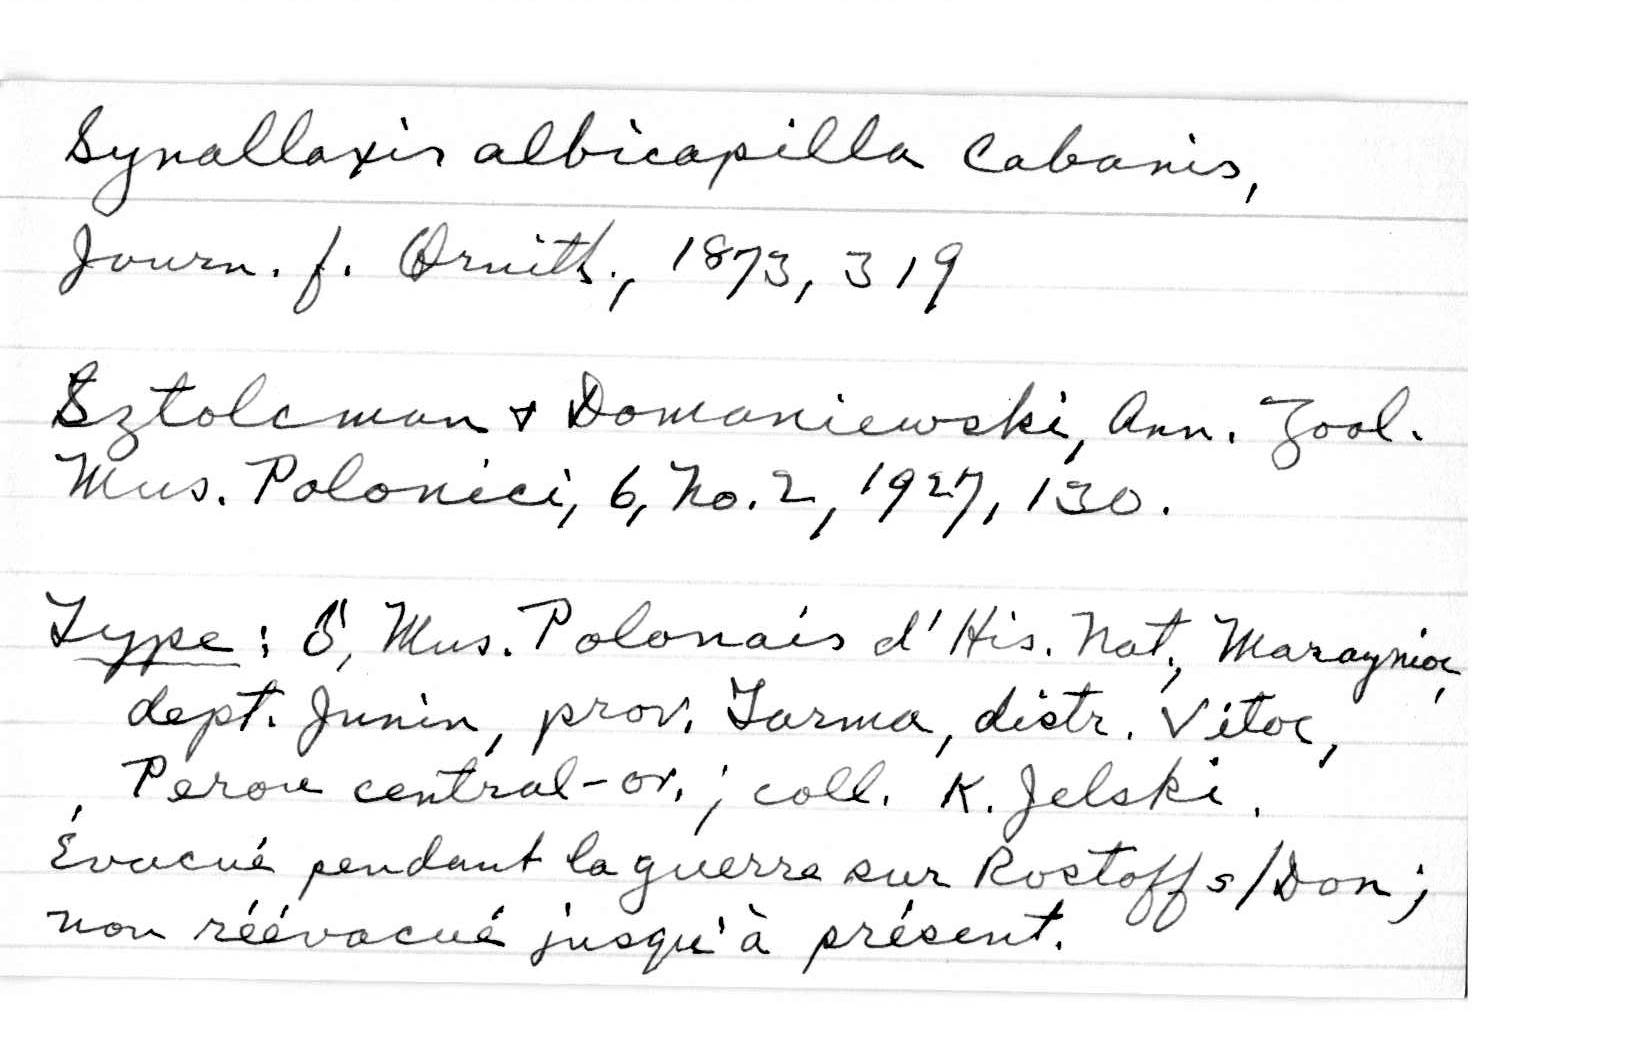 Synallaxis albicapilla Cabanis,
Journ. f. Ornith., 1873, 319
Sztolcman & Domaniewski, Ann. Zool.
Mus. Polonici, 6, No. 2, 1927, 130.
Type: ♂, Mus. Polonais d'His. Nat., Maraynioc,
dept. Junin, prov. Tarma, distr. Vitoc,
Perou central-or.; coll. K. Jelski.
Évacué pendant la guerre sur Rostoff s/Don;
non réévacué jusqu'à présent.